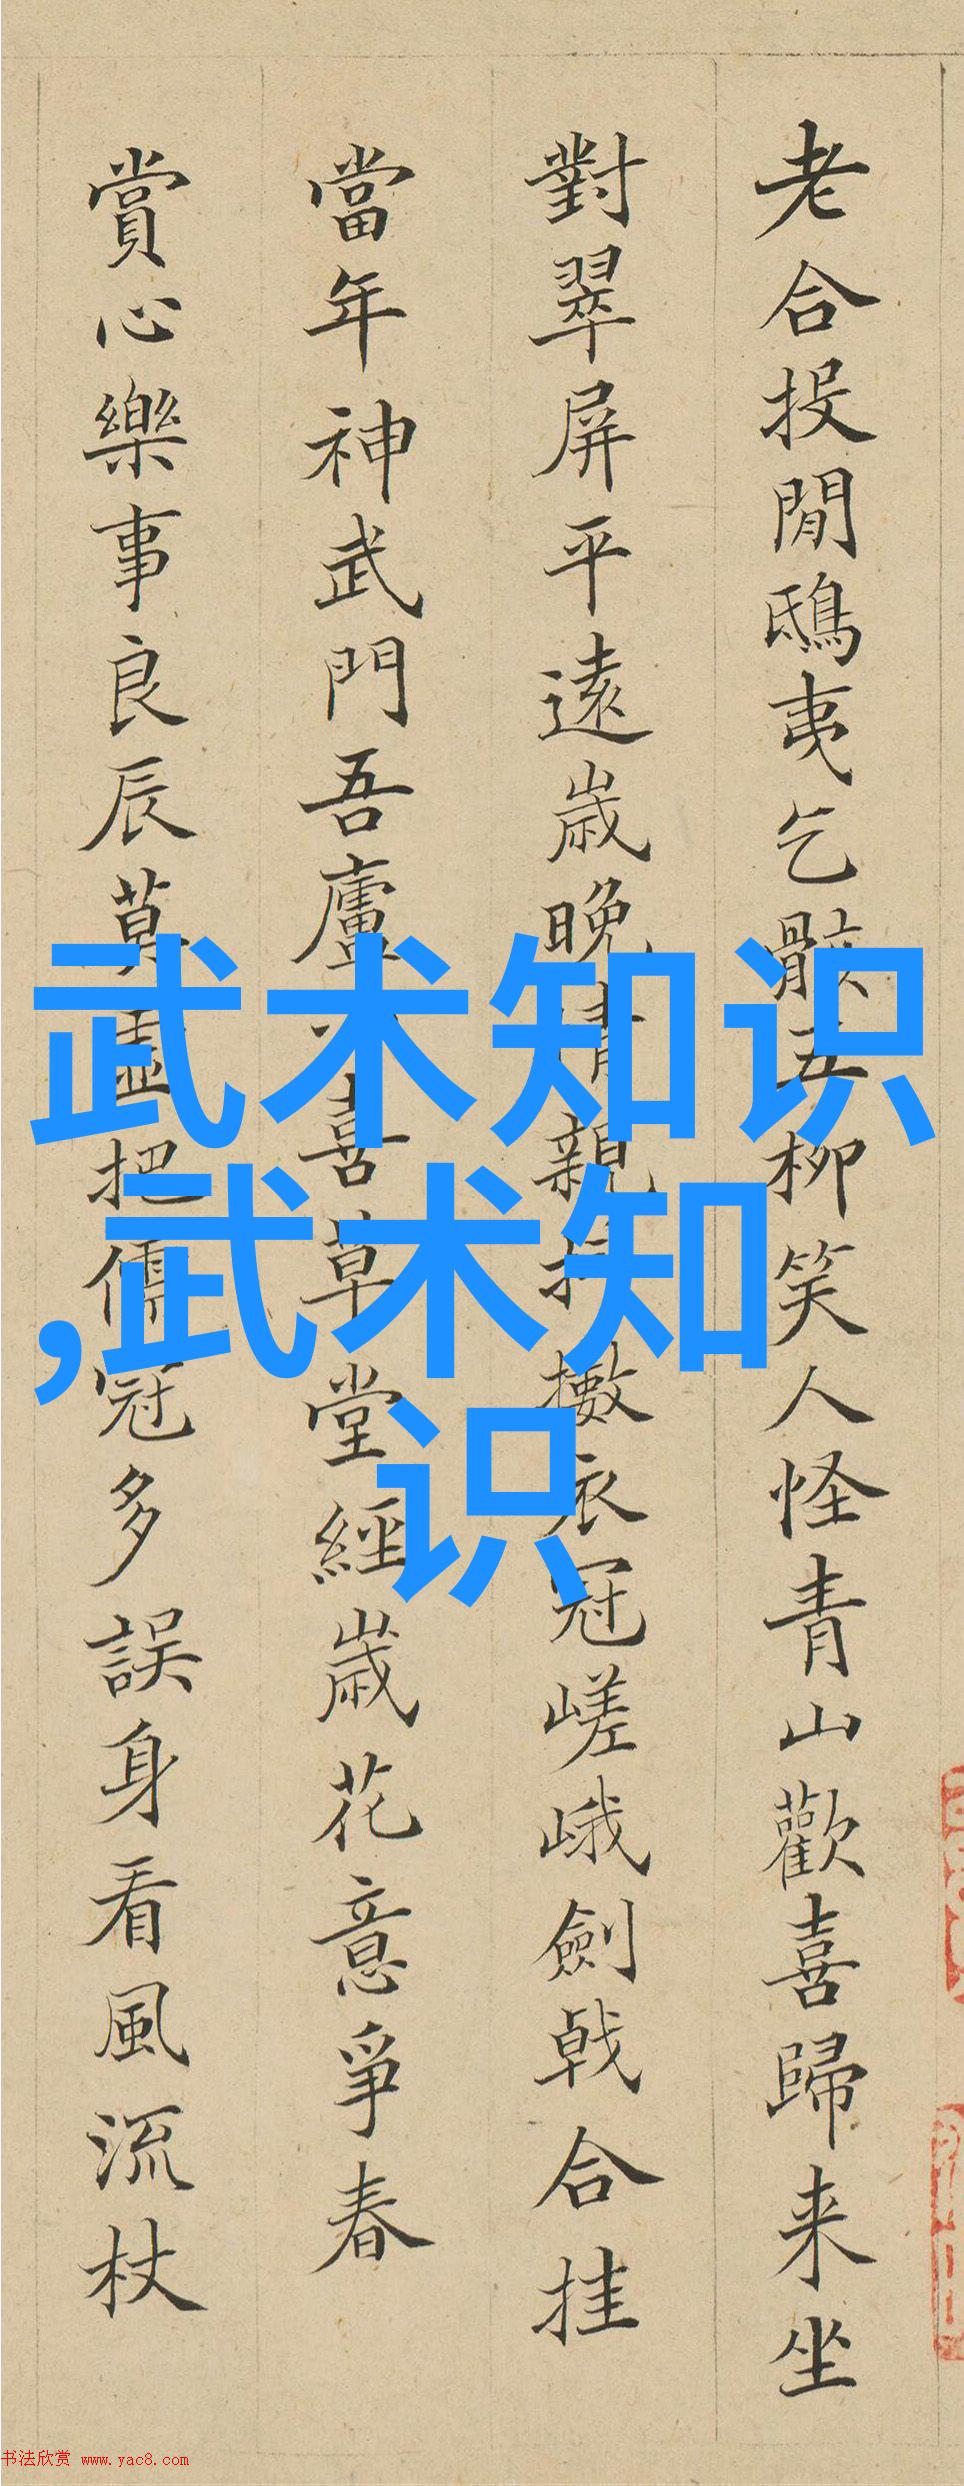 老合投閒鴟夷乞骸五柳笑人怪青山歡喜歸来坐
對翠屏平遠歲晚情親掛撇衣冠嵯峨劍戟合挂
當年神武門吾廬喜草堂經歲花意爭春
賞心樂事良辰莫盡把儒冠多誤身看風流杖
武术知识
,武术知
识
书法欣赏 www.yac8.com